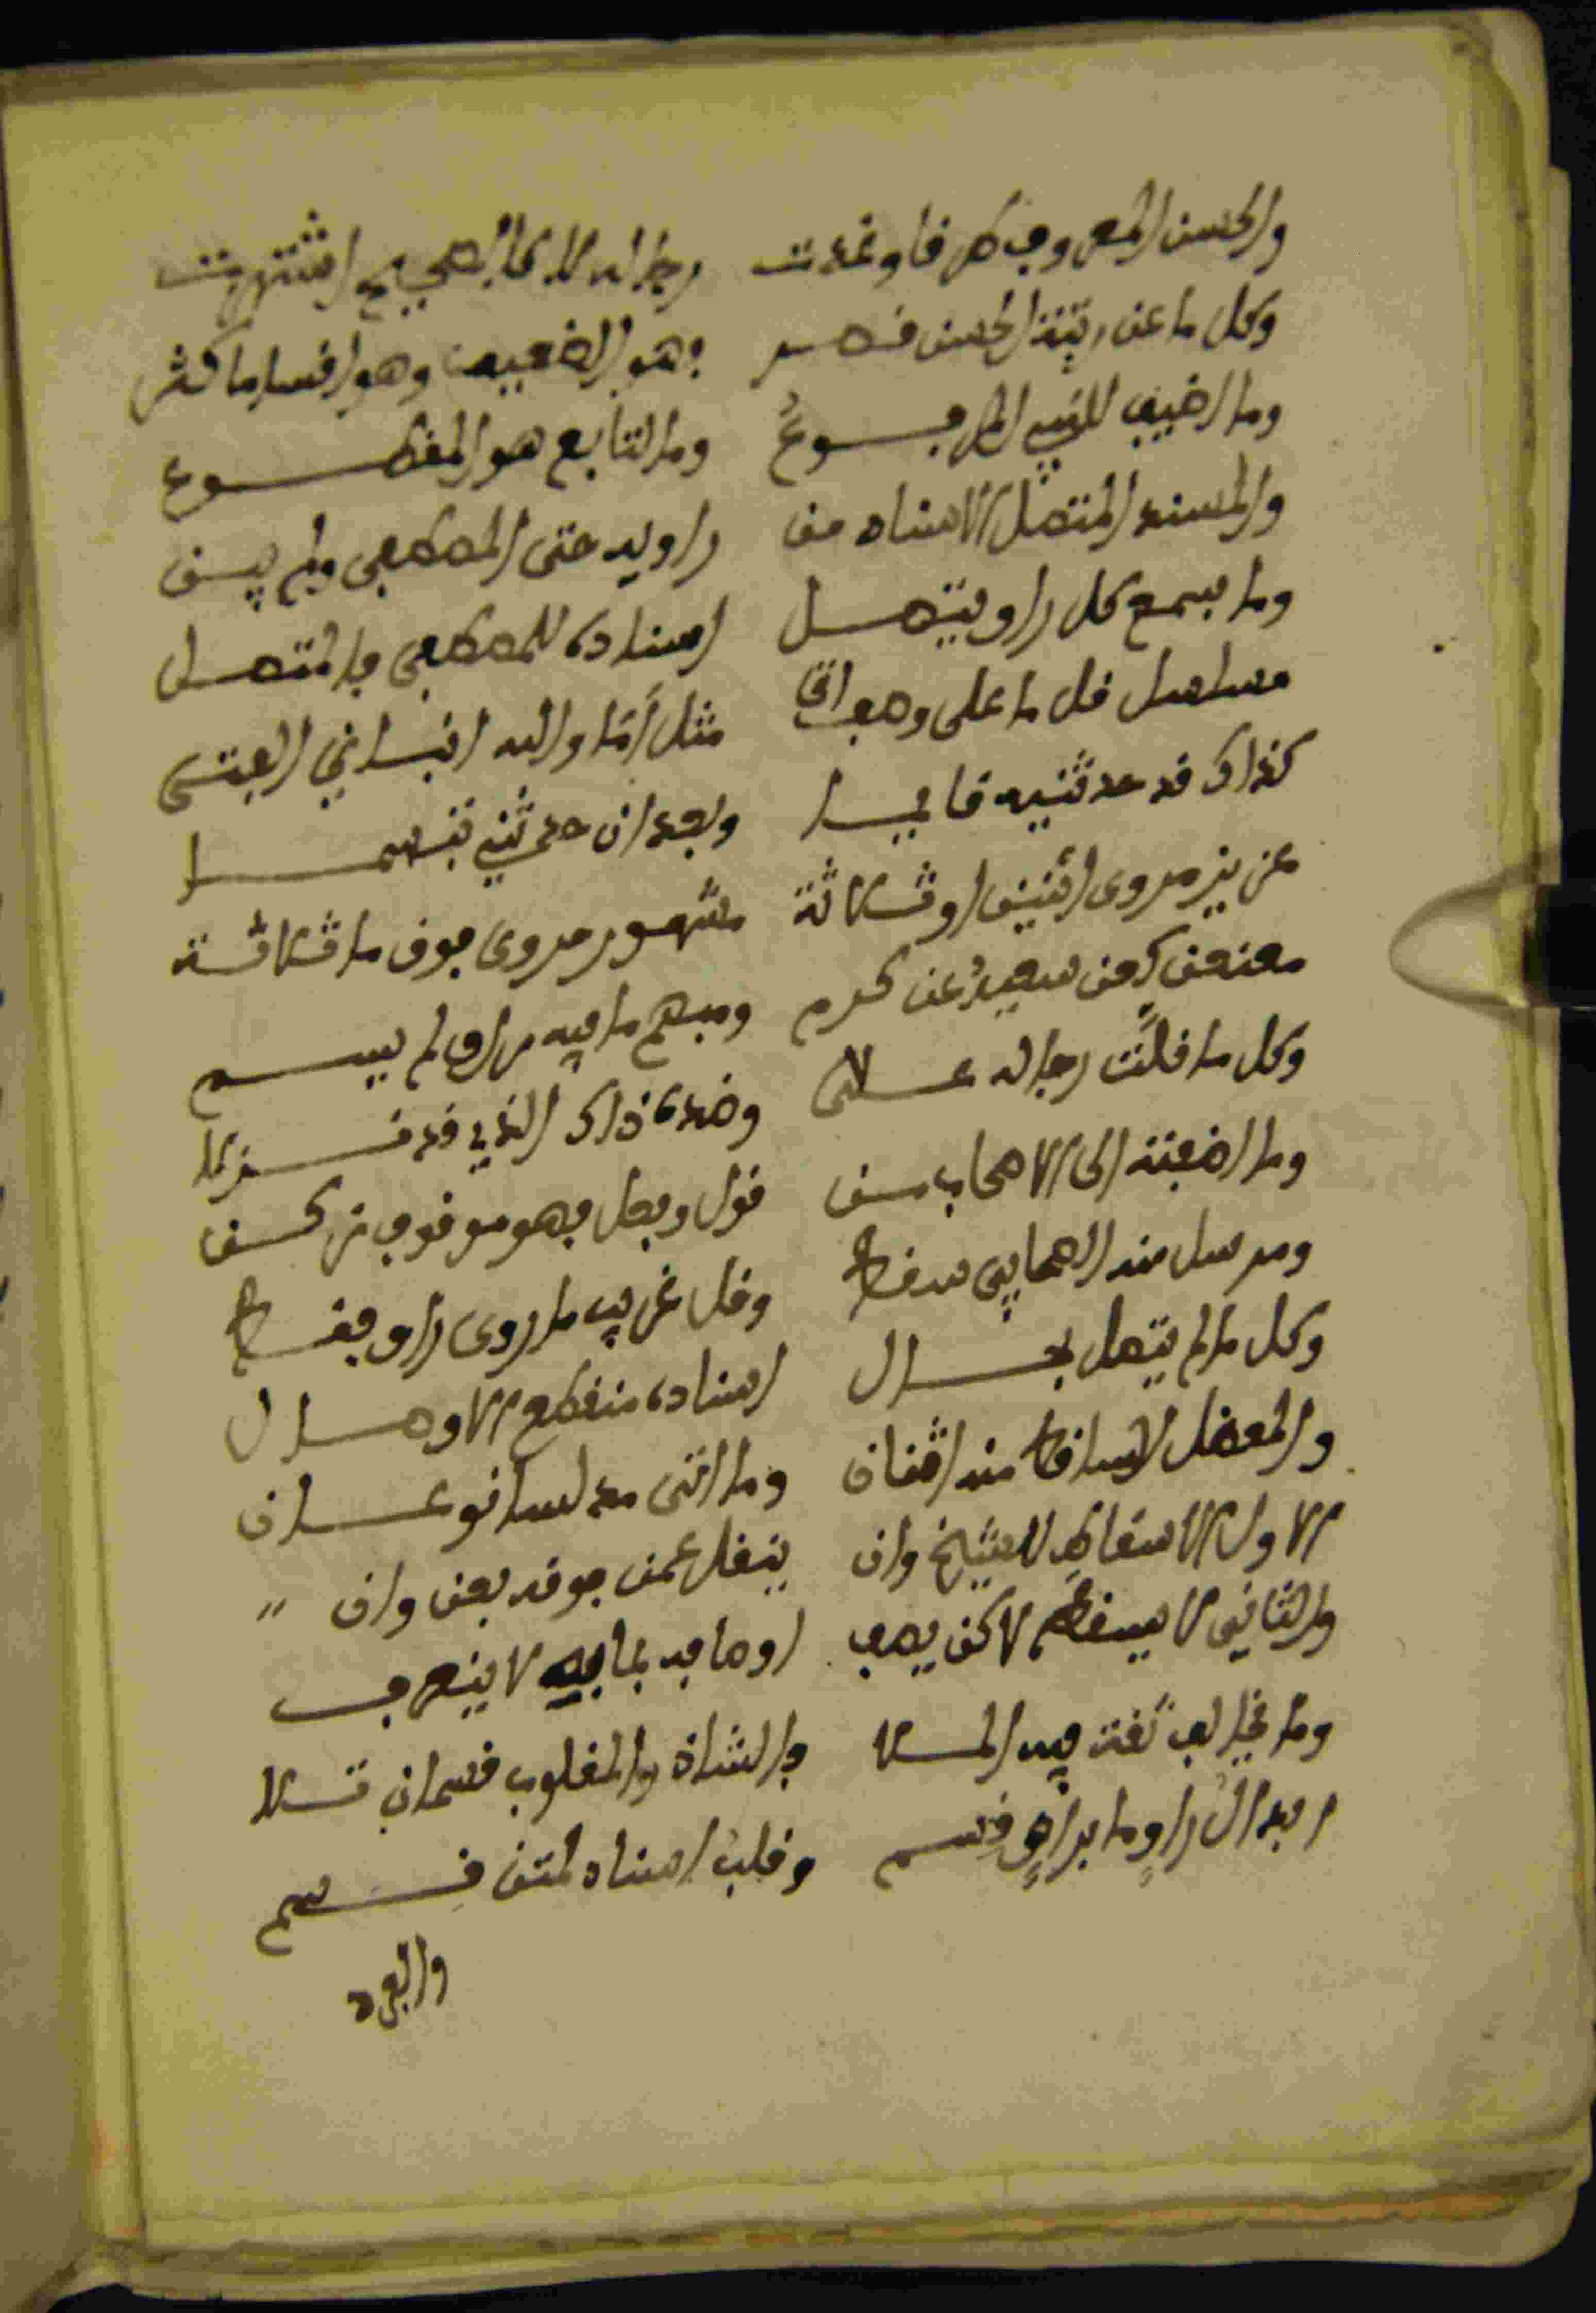 والحسن المعروف طرفا وغدت رجاله لا كالصحيح اشتهرت
وكل ما عن رتبة الحسن قصر فهو الضعيف وهو اقساما كثر
وما اضيف للنبي المرفوعُ وما لتابع هو المقطوع
والمسند المتصل الاسناد من راويه حتى المصطفى ولم يبن
وما بسمع كل راو يتصل اسناده للمصطفى فالمتصل
مسلسل قل ما على وصف اتى مثل أمَا والله انباني الفتى
كذاك قد حدثنيه قايما او بعد ان حدثني تبسما
عزيز مروى اثنين او ثلاثة مشهور مروى فوق ما ثلاثة
معنعن كعن سعيدٍ عن كرم ومبهم ما فيه راو لم يسم
وكل ما قلَّت رجاله علا وضده ذاك الذي قد نزلا
وما اضفته الى الاصحاب من قول وفعل فهو موقوف زكن
ومرسل منه الصحابي سقط وقل غريب ما روى راو فقط
وكل ما لم يتصل بحال اسناده منقطع الاوصال
والمعضل الساقط منه اثنان وما اتى مدلسا نوعان
الاول الاسقاط للشيخ وان ينقل عمن فوقه بعن وان
والثاني لا يسقطه لاكن يصف اوصافه بما به لا ينعرف
وما يخالف ثقة فيه الملا فالشاذ والمقلوب قسمان تلا
ابدال راوٍ ما براوٍ قسم وقلبُ اسناد لمتن قسم
والفرد